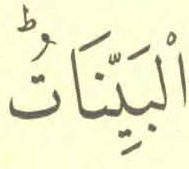 الْبَيِّنَاتُؕ